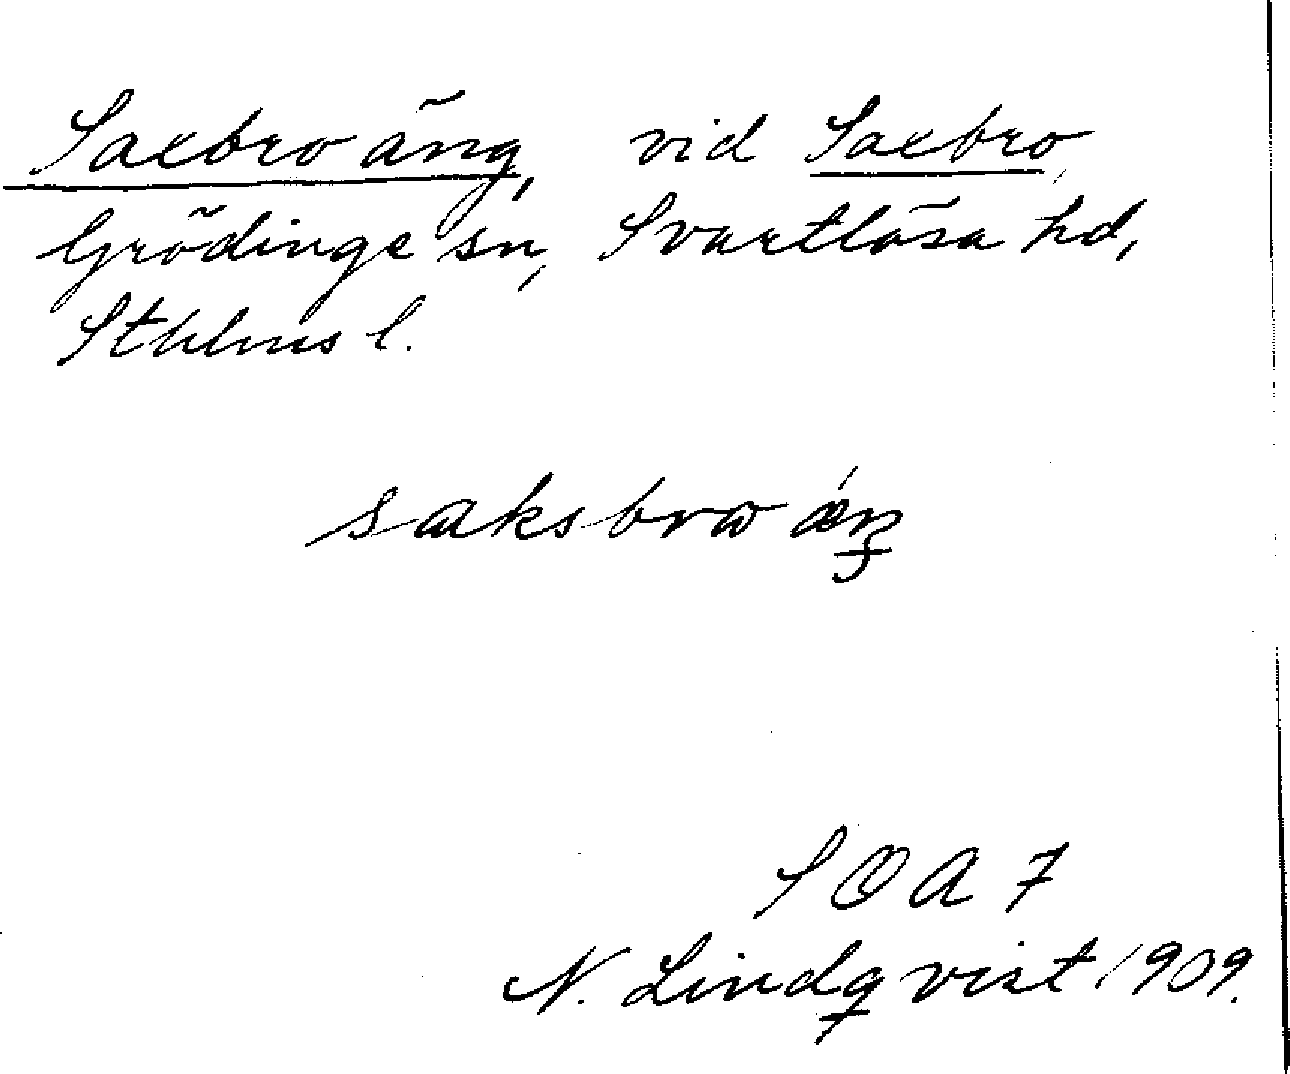 Saxbro äng, vid Saxbro,
Grödinge sn, Svartlösa hd,
Sthlms l.
saksbrω ǽŋ
SOA 7
N. Lindqvist 1909.